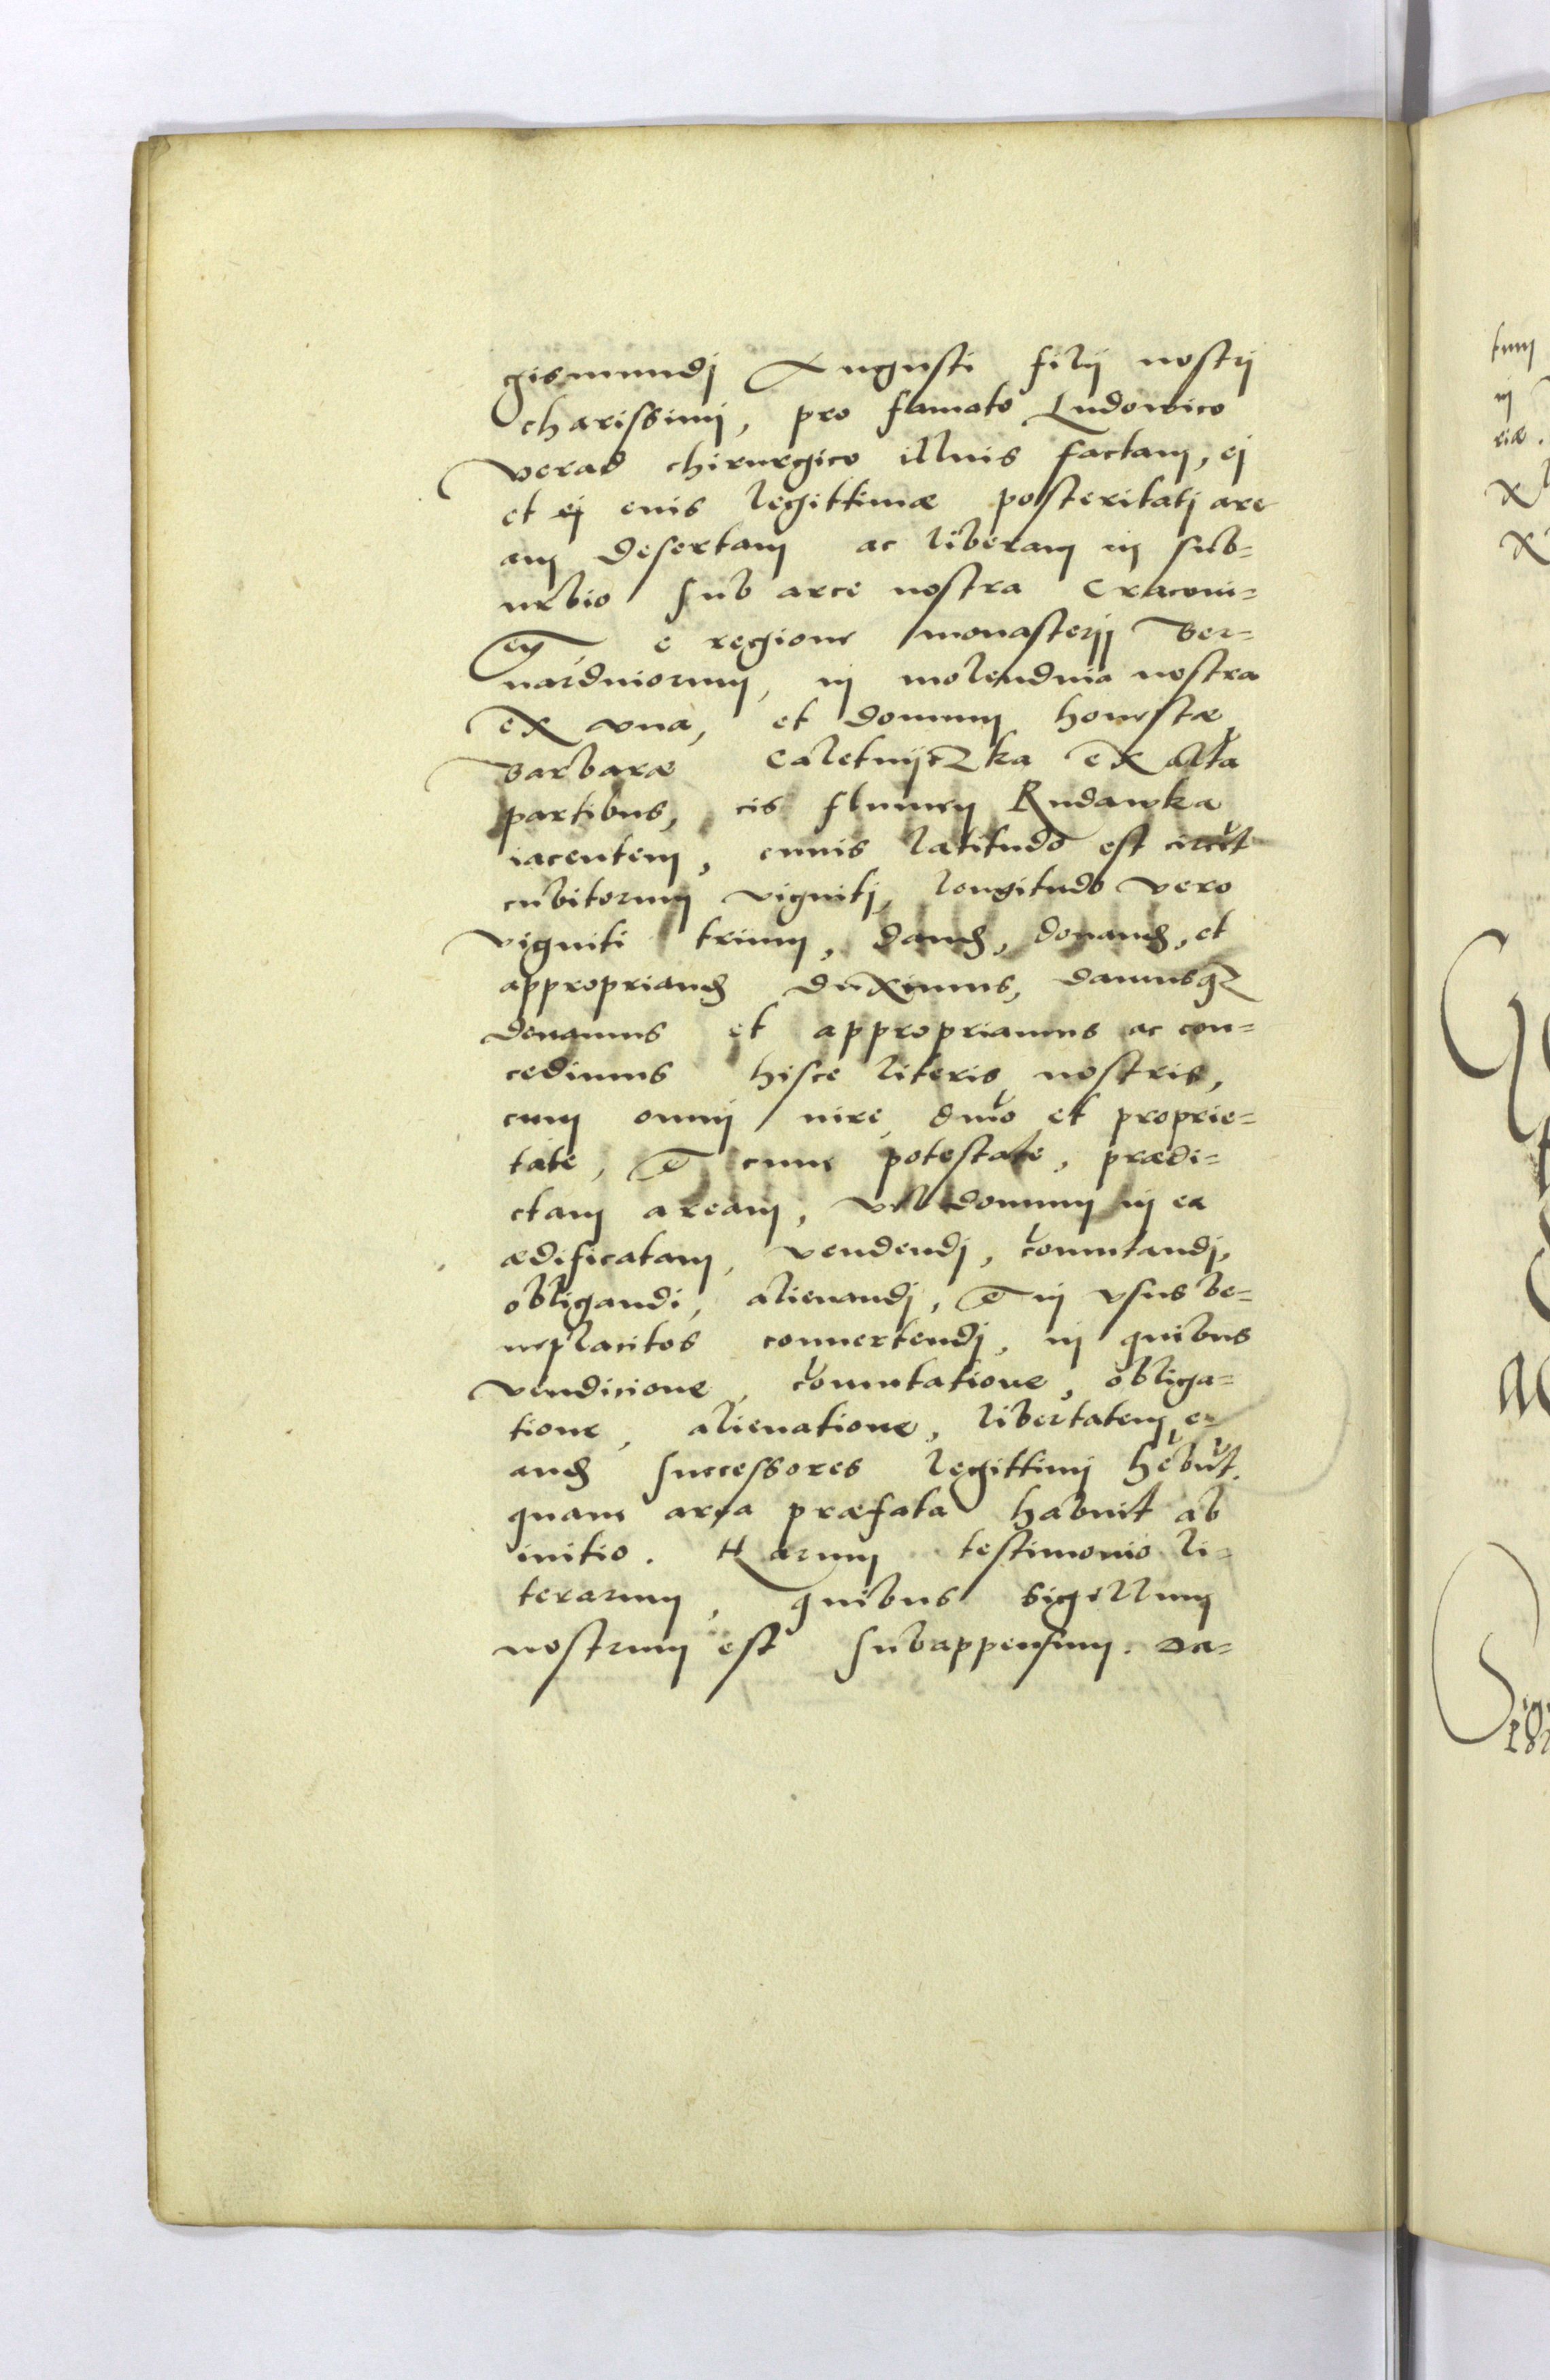 gismundj Augusti filij nostrj
charissimj, pro famato Ludowico
verad chirurgico illius factam, ej
et ej euis legittimæ posteritatj are
am desertam ac liberam in sub=
urbio sub arce nostra Cracoui=
en̄ e regione monasterij Ber=
nardinorum, in molendina nostra
ex vna, et domum honestæ
Barbaræ Caletnijczka ex altā
partibus, cis flumen Rudawka
iacentem, cuuis latitudo est
cubitorum vigintj, longitudo vero
viginti trium, dand, donand, et
appropriand duximus, damusq3
donamus et appropriamus ac con=
cedimus hisce literis nostris,
cum omnj iure dnio et proprie=
tate, et cum potestate, prædi=
ctam aream, vel domum in ea
ædificatam, vendendj, cōmutandj,
obligandi, alienandj, et in vsus be=
neplacitos conuertendj, in quibus
vendicione, cōmutatione, obliga=
tione, alienatione, libertatem
and successores legittimj hēbūt,
quam area præfata habuit ab
initio. Harum testimonio li=
terarum, quibus sigillum
nostrum est subappensum. Da=
tum
in
riæ.